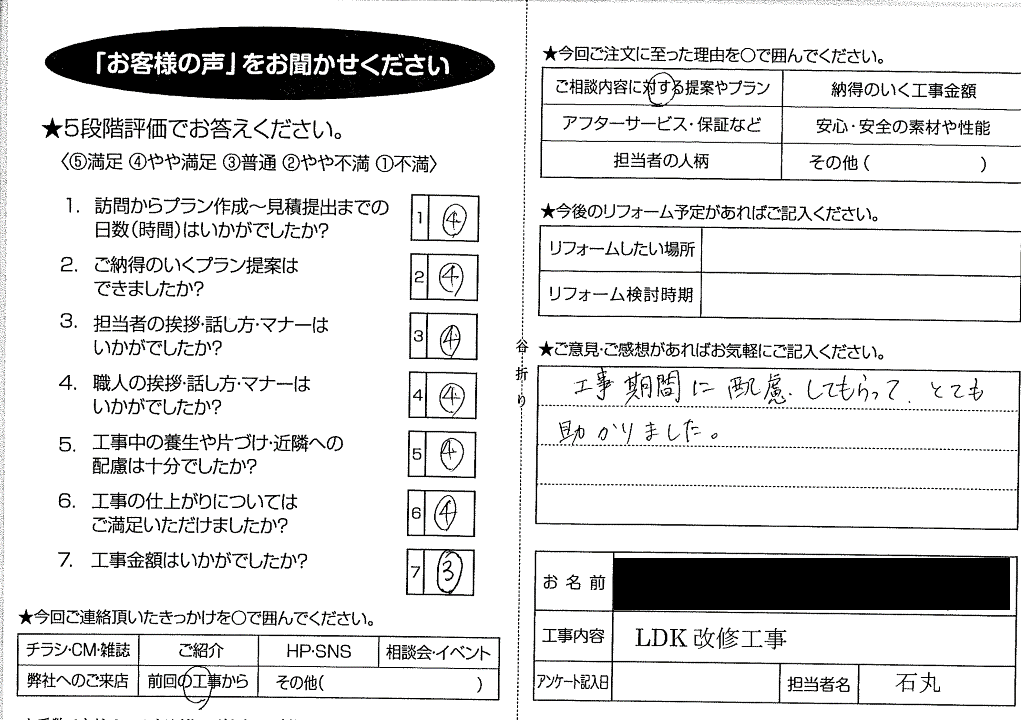 「お客様の声」をお聞かせください
★5段階評価でお答えください。
〈⑤満足 ④やや満足 ③普通 ②やや不満 ①不満〉
1. 訪問からプラン作成〜見積提出までの
日数(時間)はいかがでしたか?
1 ④
2. ご納得のいくプラン提案は
できましたか?
2 ④
3. 担当者の挨拶・話し方・マナーは
いかがでしたか?
3 ④
4. 職人の挨拶・話し方・マナーは
いかがでしたか?
4 ④
5. 工事中の養生や片づけ・近隣への
配慮は十分でしたか?
5 ④
6. 工事の仕上がりについては
ご満足いただけましたか?
6 ④
7. 工事金額はいかがでしたか?
7 ③
★今回ご連絡頂いたきっかけを○で囲んでください。
チラシ・CM・雑誌 ご紹介 HP・SNS 相談会・イベント
弊社へのご来店 前回の工事から その他( )
谷折り
★今回ご注文に至った理由を○で囲んでください。
ご相談内容に対する提案やプラン 納得のいく工事金額
アフターサービス・保証など 安心・安全の素材や性能
担当者の人柄 その他( )
★今後のリフォーム予定があればご記入ください。
リフォームしたい場所
リフォーム検討時期
★ご意見・ご感想があればお気軽にご記入ください。
工事期間に配慮してもらって、とても
助かりました。
お名前
工事内容 LDK改修工事
アンケート記入日 担当者名 石丸